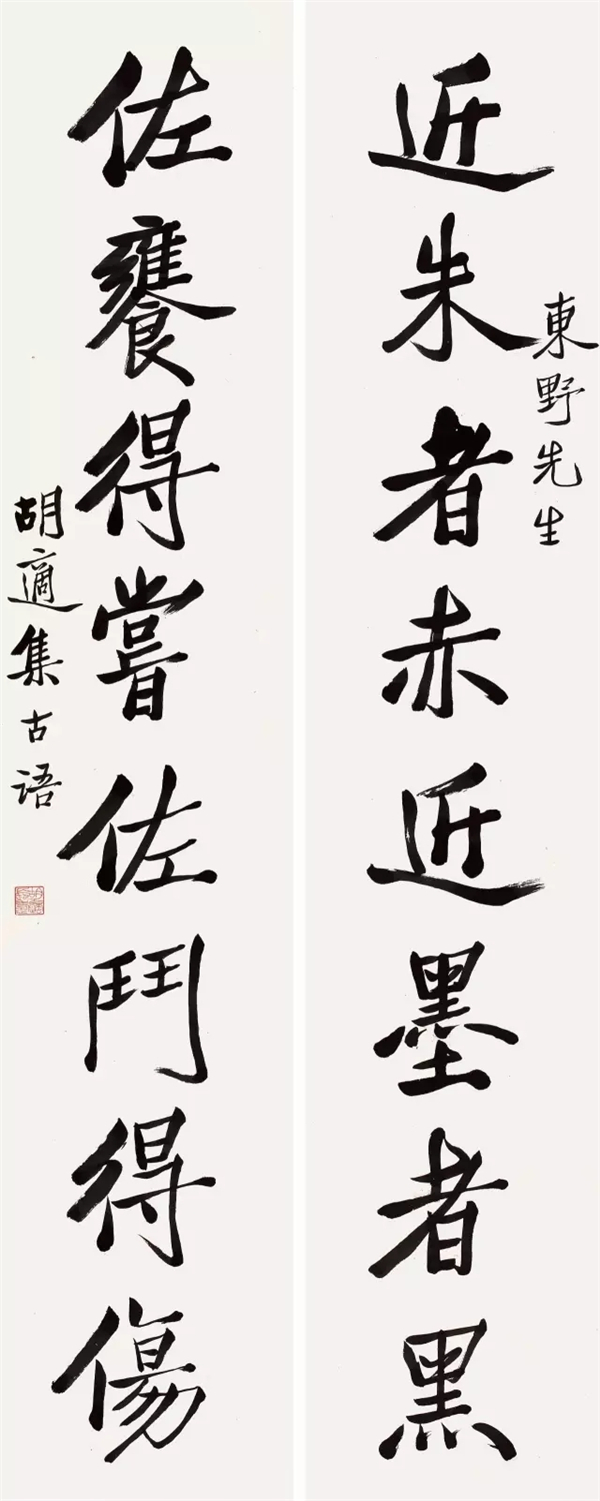 東野先生
近朱者赤近墨者黑
佐饔得嘗佐鬥得傷
胡適集古語